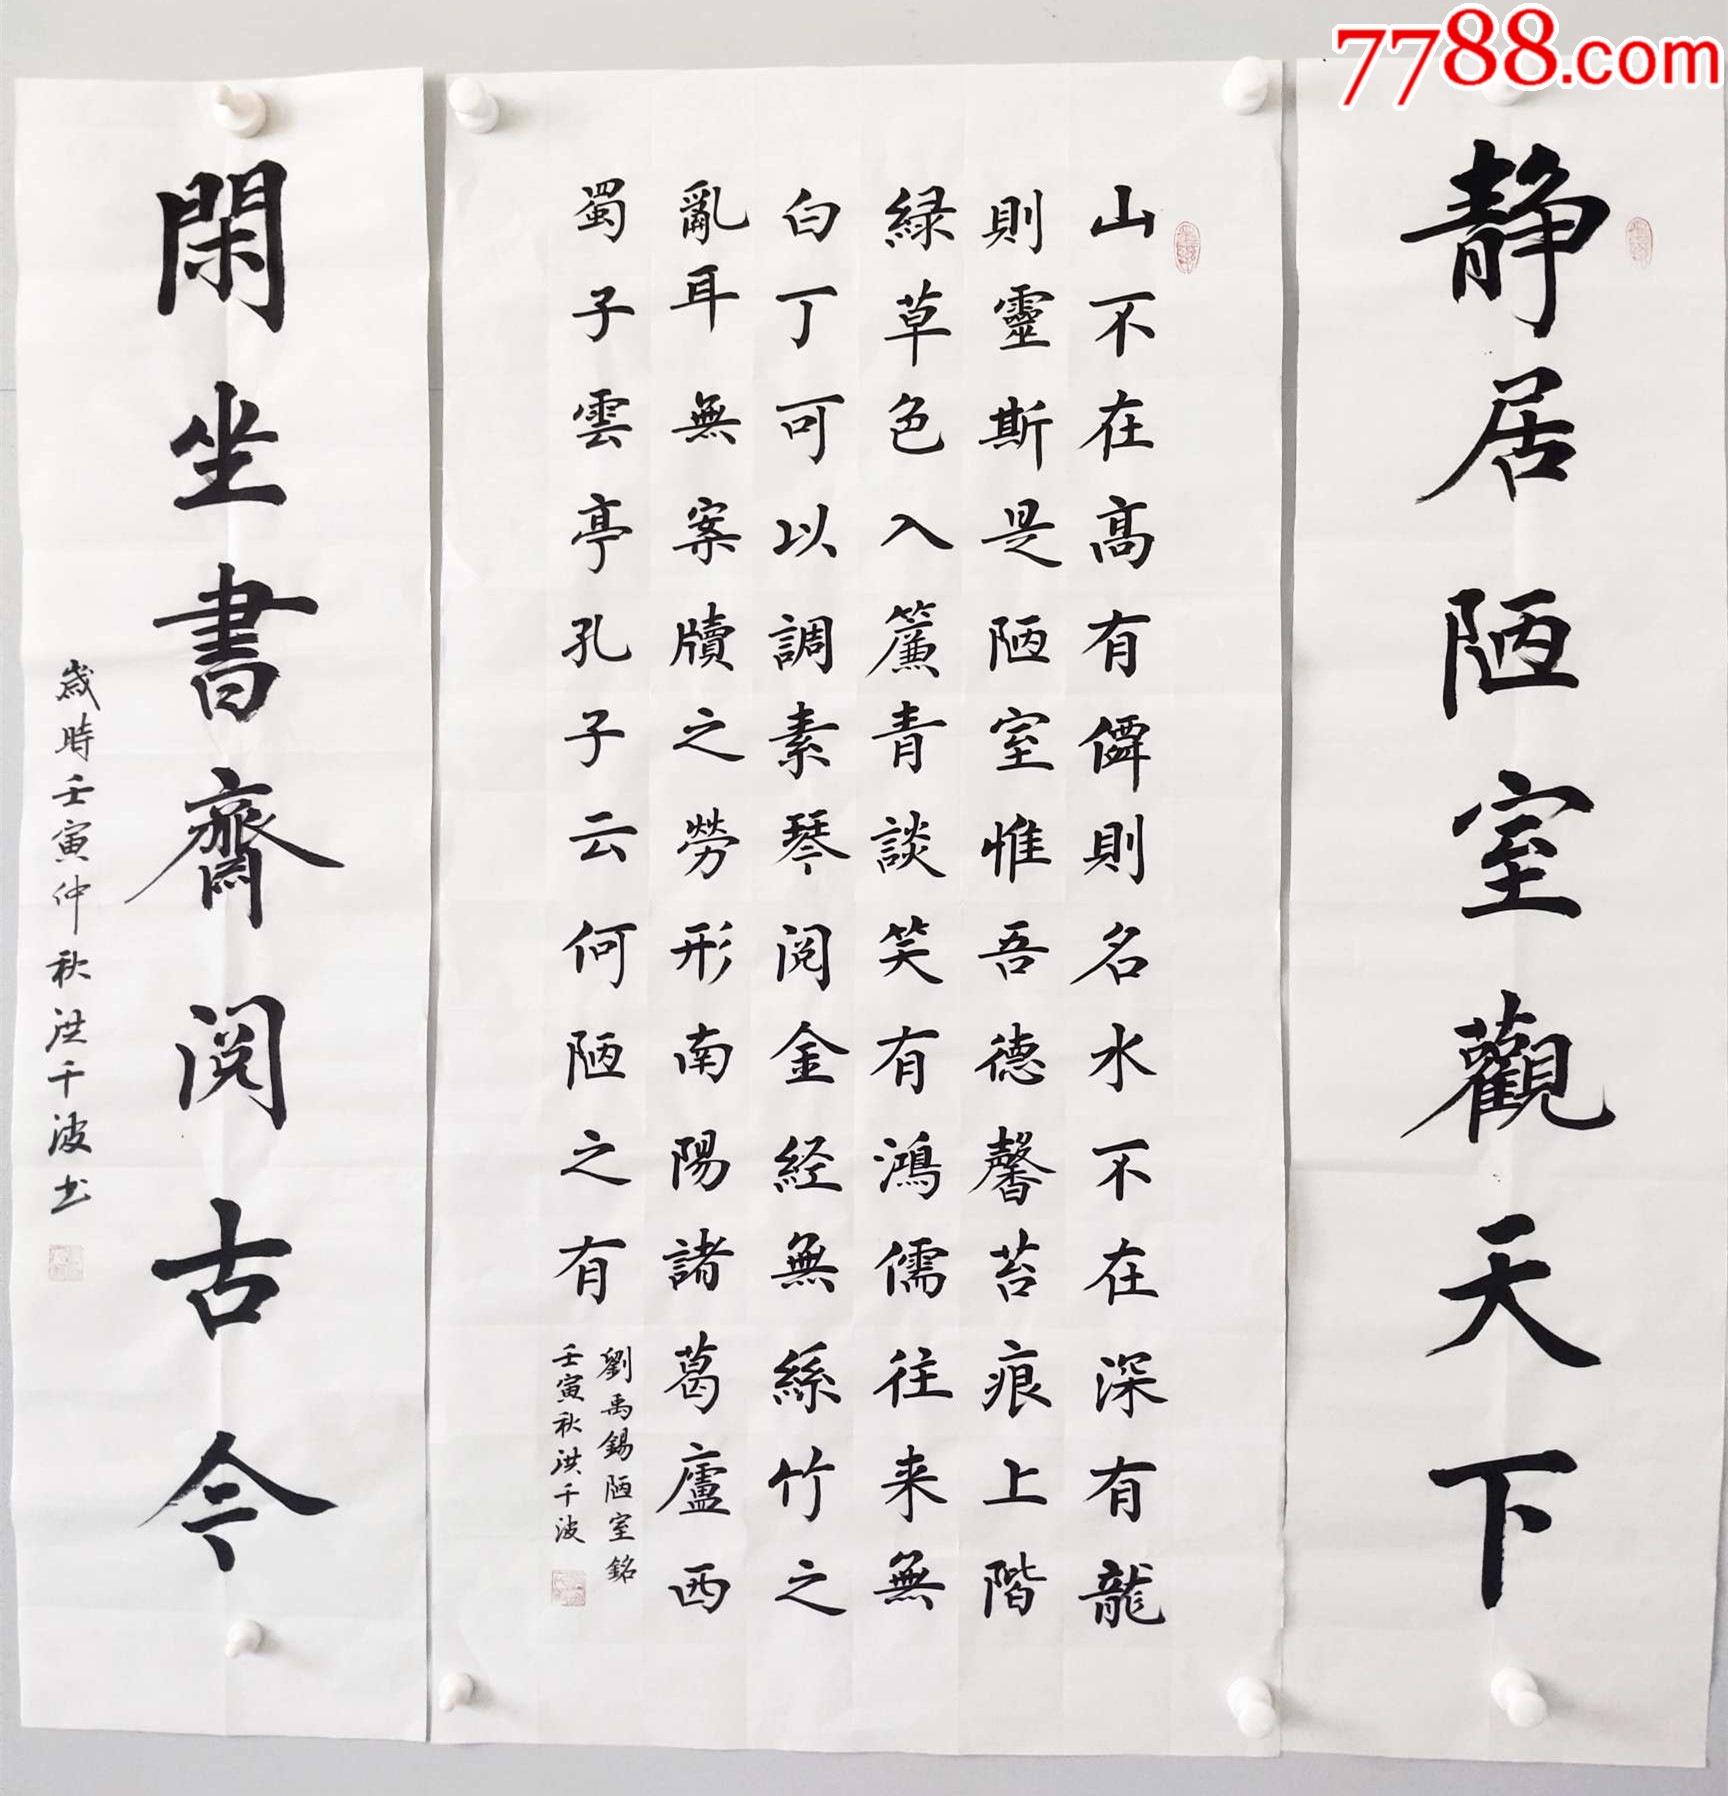 7788.com
静居陋室觀天下
山不在高有僊則名水不在深有龍
則靈斯是陋室惟吾德馨苔痕上階
緑草色入簾青談笑有鴻儒往来無
白丁可以調素琴阅金経無絲竹之
亂耳無案牘之勞形南陽諸葛廬西
蜀子雲亭孔子云何陋之有
劉禹錫陋室銘
壬寅秋洪千波
閑坐書齋阅古今
歲時壬寅仲秋洪千波书